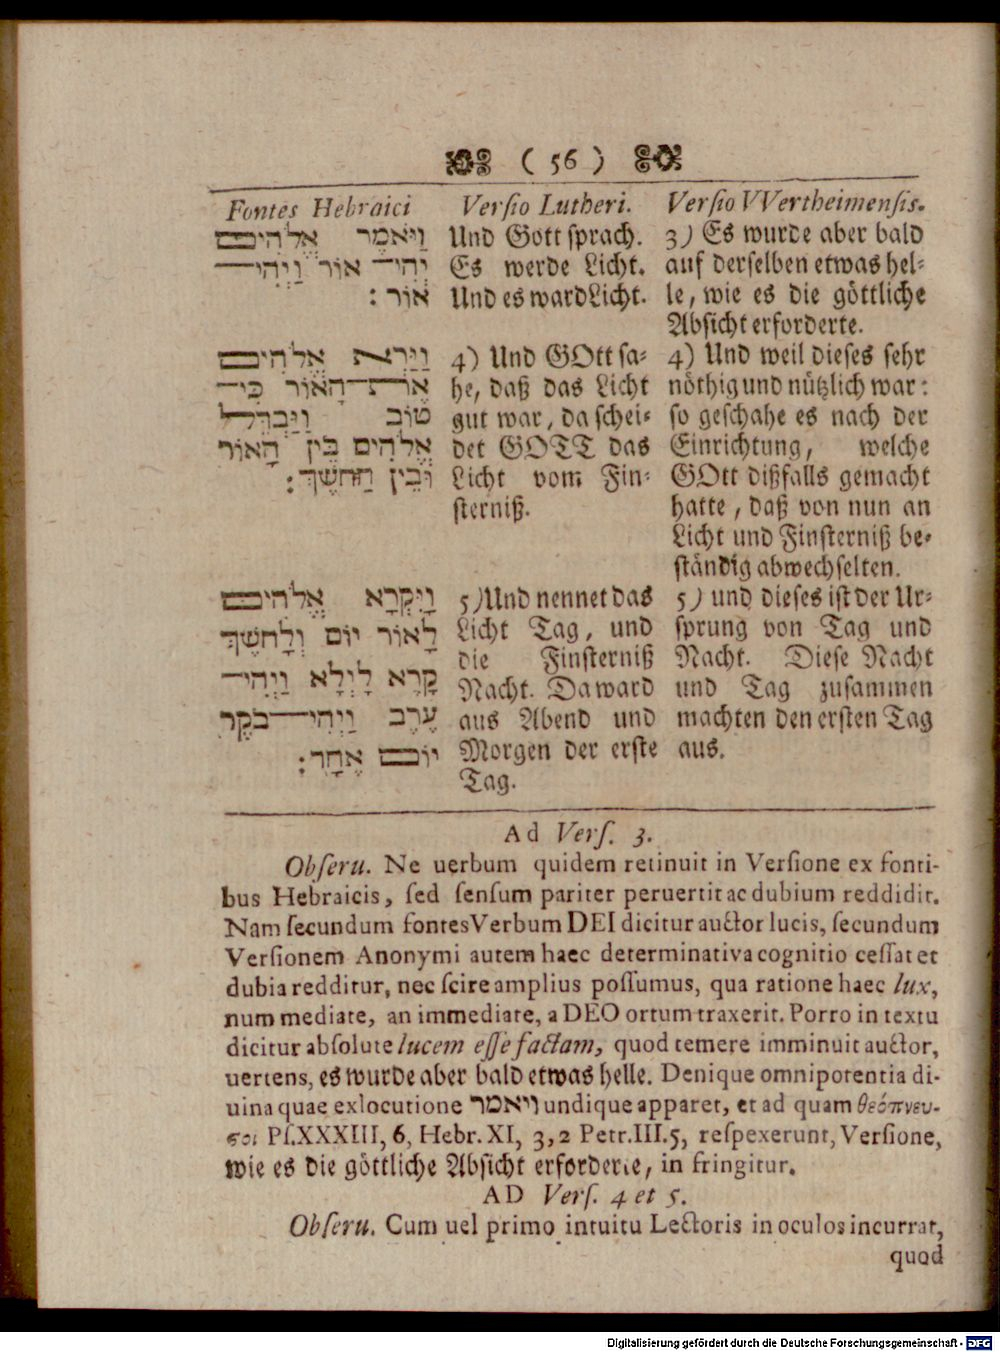 ( 56 )
Fontes Hebraici
וַיֹּאמֶר אֱלֹהִים
יְהִי־ אוֹר וַיְהִי־
אוֹר :
וַיַּרְא אֱלֹהִים
אֶת־הָאוֹר כִּי־
טוֹב וַיַּבְדֵּל
אֱלֹהִים בֵּין הָאוֹר
וּבֵין הַחֹשֶׁךְ :
וַיִּקְרָא אֱלֹהִים
לָאוֹר יוֹם וְלַחֹשֶׁךְ
קָרָא לָיְלָא וַיְהִי־
עֶרֶב וַיְהִי־בֹקֶר
יוֹם אֶחָד :
Versio Lutheri.
Und Gott sprach.
Es werde Licht.
Und es ward Licht.
4) Und GOtt sa-
he, daß das Licht
gut war, da schei-
det GOTT das
Licht vom Fin-
sterniß.
5) Und nennet das
Licht Tag, und
die Finsterniß
Nacht. Da ward
aus Abend und
Morgen der erste
Tag.
Versio VVertheimensis.
3) Es wurde aber bald
auf derselben etwas hel-
le, wie es die göttliche
Absicht erforderte.
4) Und weil dieses sehr
nöthig und nützlich war:
so geschahe es nach der
Einrichtung, welche
GOtt dißfalls gemacht
hatte, daß von nun an
Licht und Finsterniß be-
ständig abwechselten.
5) und dieses ist der Ur-
sprung von Tag und
Nacht. Diese Nacht
und Tag zusammen
machten den ersten Tag
aus.
Ad Vers. 3.
Obseru. Ne uerbum quidem retinuit in Versione ex fonti-
bus Hebraicis, sed sensum pariter peruertit ac dubium reddidit.
Nam secundum fontes Verbum DEI dicitur auctor lucis, secundum
Versionem Anonymi autem haec determinativa cognitio cessat et
dubia redditur, nec scire amplius possumus, qua ratione haec lux,
num mediate, an immediate, a DEO ortum traxerit. Porro in textu
dicitur absolute lucem esse factam, quod temere imminuit auctor,
uertens, es wurde aber bald etwas helle. Denique omnipotentia di-
uina quae ex locutione ויאמר undique apparet, et ad quam θεόπνευ-
ϛοι Ps. XXXIII, 6, Hebr. XI, 3, 2 Petr. III. 5, respexerunt, Versione,
wie es die göttliche Absicht erforderte, in fringitur.
AD Vers. 4 et 5.
Obseru. Cum uel primo intuitu Lectoris in oculos incurrat,
quod
Digitalisierung gefördert durch die Deutsche Forschungsgemeinschaft - DFG